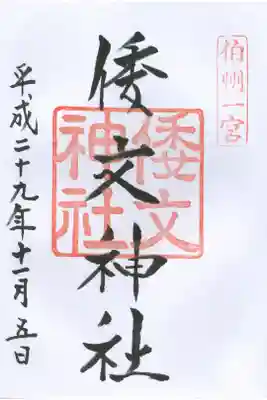 伯州一宮
倭文神社
倭文神社
平成二十九年十一月五日